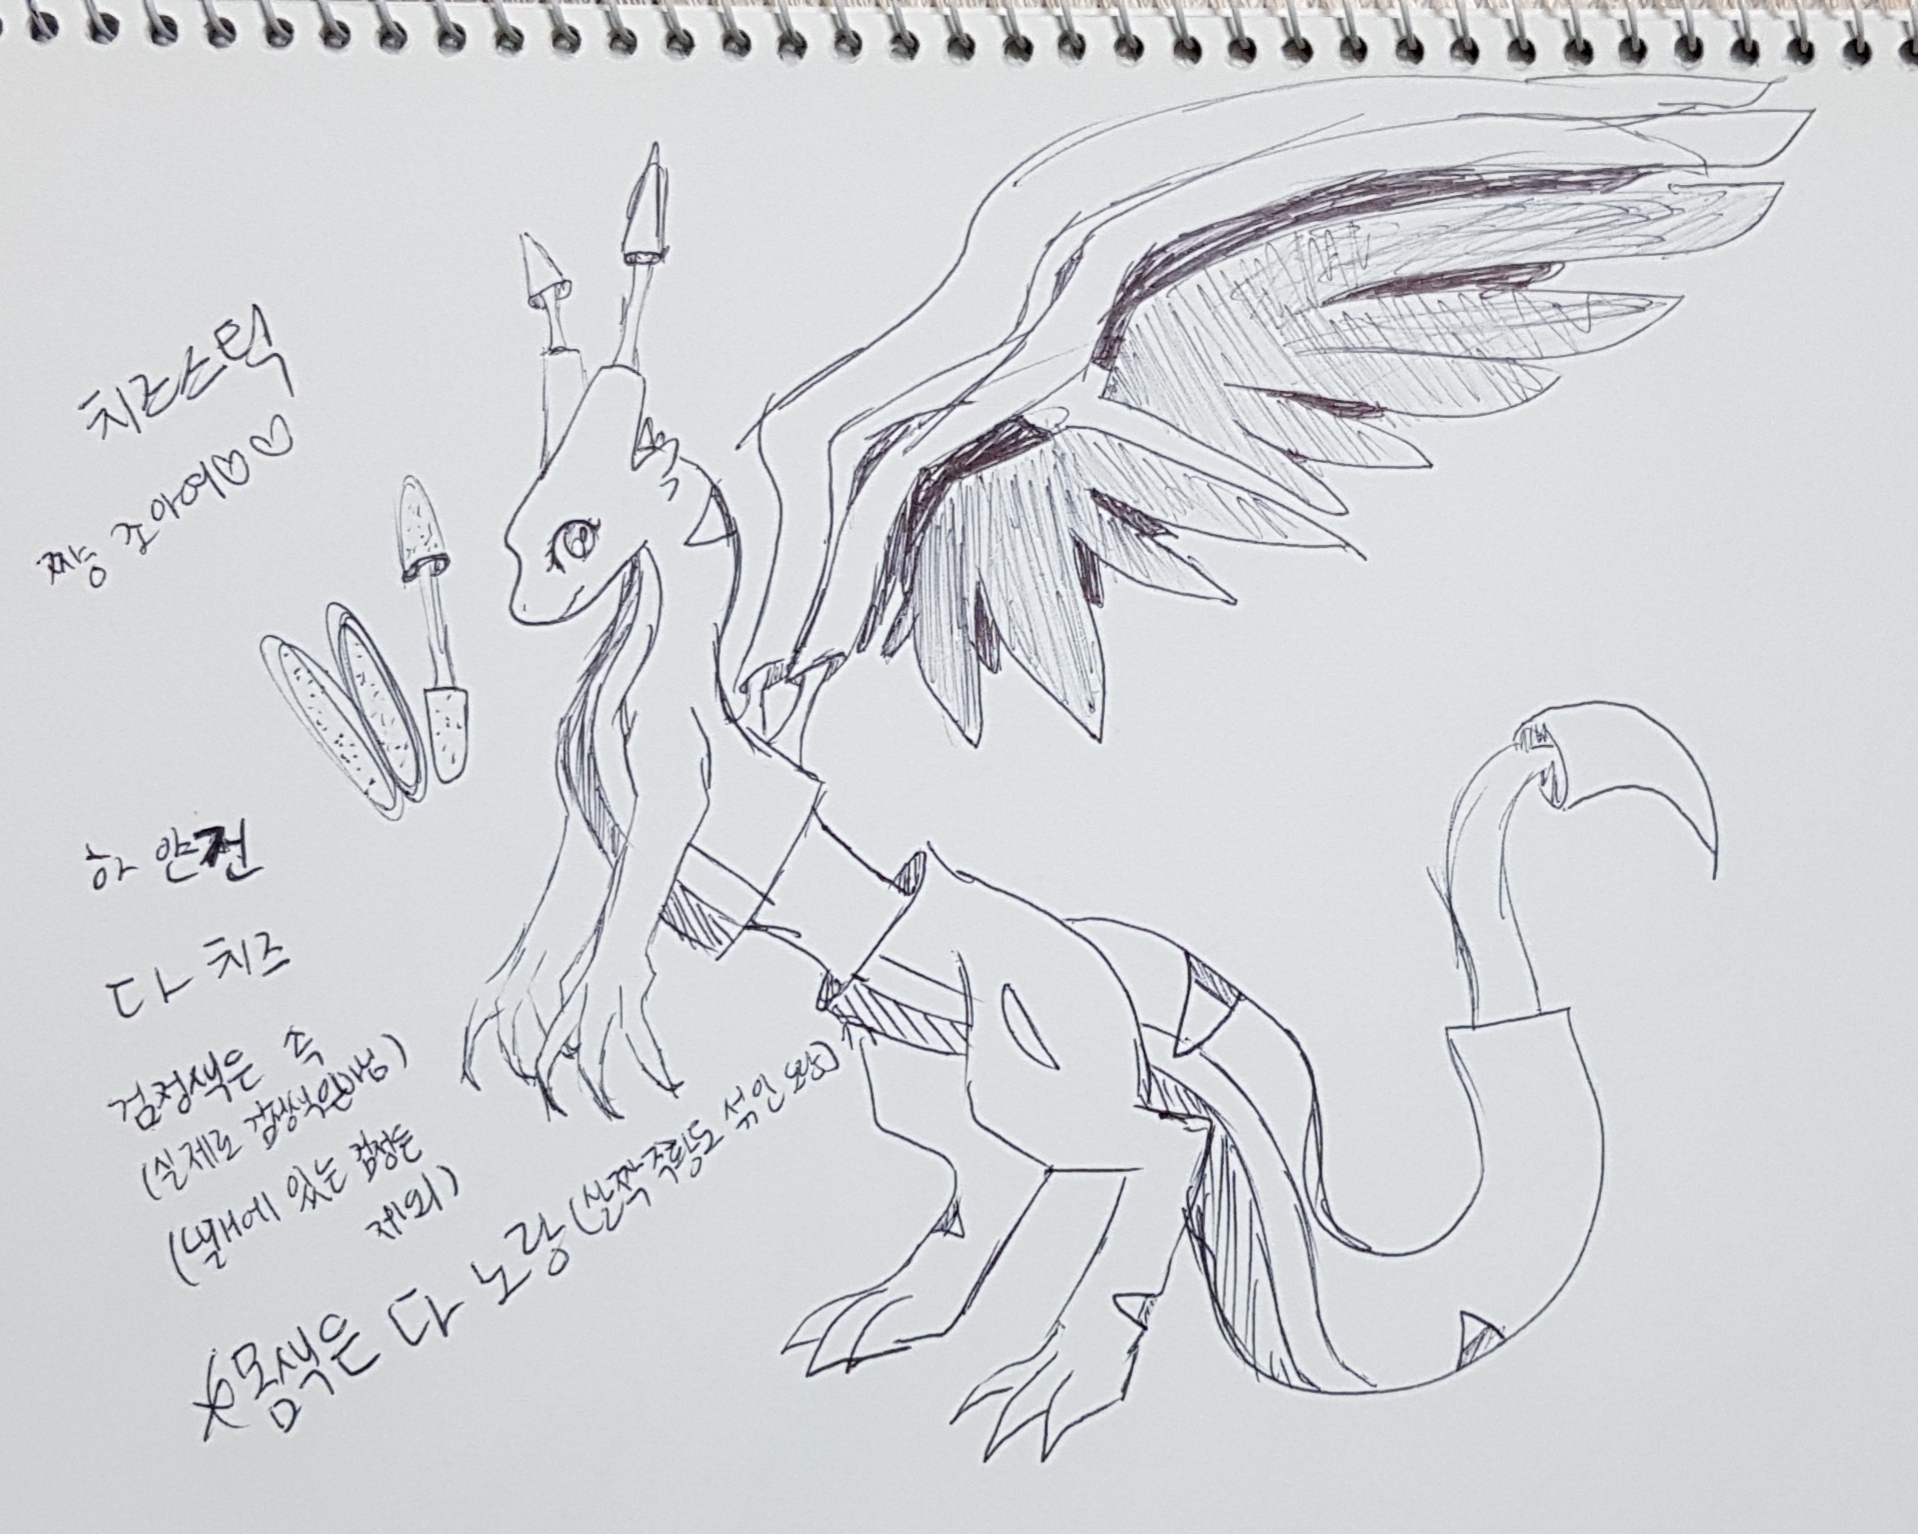 치즈스틱
짱 조아여♡♡
하얀건
다 치즈
검정색은 속
(실제로 검정색은아님)
(날개에 있는 검정은
제외)
몸색은 다 노랑(살짝 주황도 섞인 노랑)